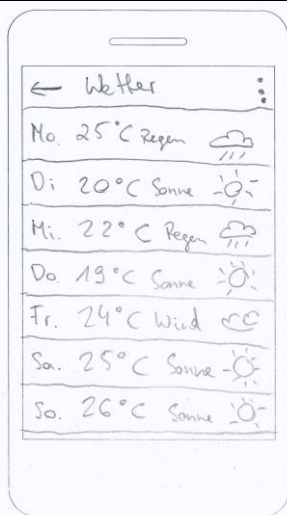 Wetter
Mo. 25°C Regen
Di 20°C Sonne
Mi. 22°C Regen
Do. 19°C Sonne
Fr. 24°C Wind
Sa. 25°C Sonne
So. 26°C Sonne